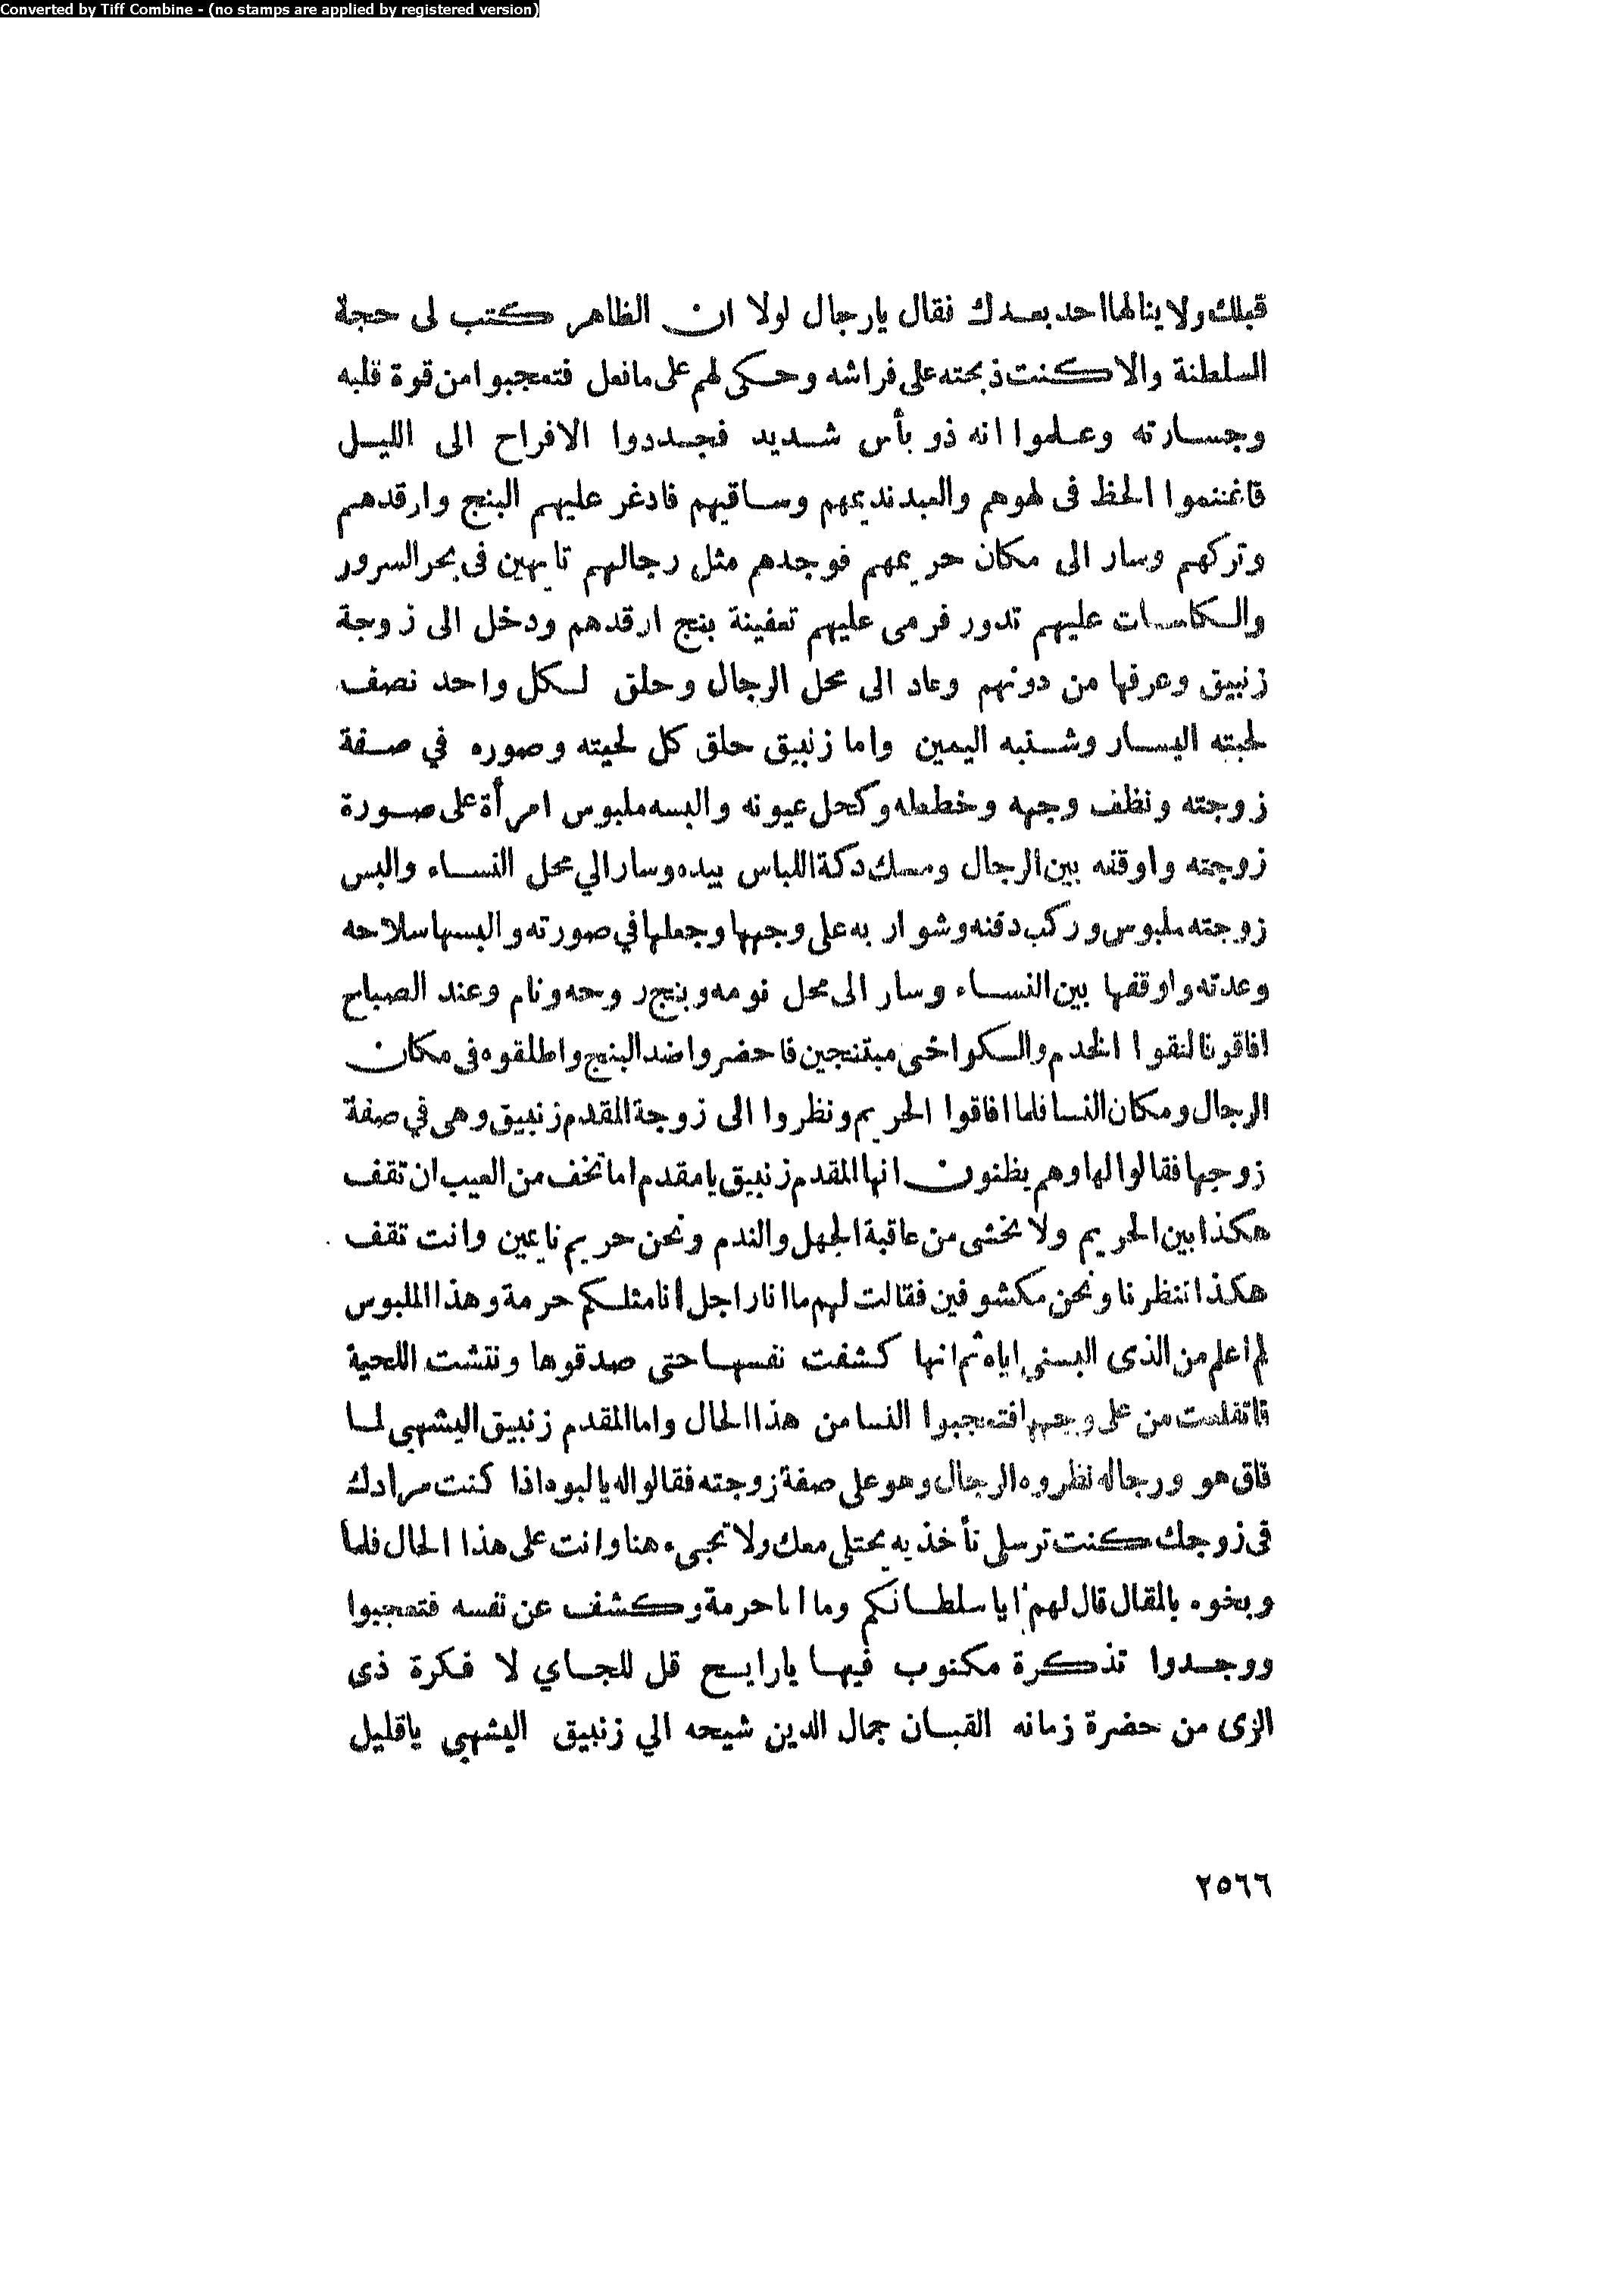 Converted by Tiff Combine - (no stamps are applied by registered version)
قبلك ولا ينالها احد بعدك فقال يارجال لولا ان الظاهر كتب لى حجة
السلطنة والا كنت ذبحته على فراشه وحكى لهم على مافعل فتعجبوا من قوة قلبه
وجسارته وعلموا انه ذو بأس شديد فجددوا الافراح الى الليل
فاغتنموا الحظ فى لهوهم والعبد نديمهم وساقيهم فادغر عليهم البنج وارقدهم
وتركهم وسار الى مكان حريمهم فوجدهم مثل رجالهم تايهين فى بحر السرور
والكاسات عليهم تدور فرمى عليهم تعفينة بنج ارقدهم ودخل الى زوجة
زنبيق وعرفها من دونهم وعاد الى محل الرجال وحلق لكل واحد نصف
لحيته اليسار وشنبه اليمين واما زنبيق حلق كل لحيته وصوره في صفة
زوجته ونظف وجهه وخططه وكحل عيونه والبسه ملبوس امرأة على صورة
زوجته واوقفه بين الرجال ومسك دكة اللباس بيده وسار الي محل النساء والبس
زوجته ملبوس وركب دقنه وشواربه على وجهها وجعلها في صورته والبسها سلاحه
وعدته واوقفها بين النساء وسار الى محل نومه وبنج روحه ونام وعند الصباح
افاقو فالتقوا الخدم والكواخى مبتنجين فاحضروا ضد البنج واطلقوه فى مكان
الرجال ومكان النسا فلما افاقوا الحريم ونظروا الى زوجة المقدم زنبيق وهى في صفة
زوجها فقالوا لها وهم يظنون انها المقدم زنبيق يامقدم اما تخف من العيب ان تقف
هكذا بين الحريم ولا تخشى من عاقبة الجهل والندم ونحن حريم نايمين وانت تقف
هكذا تنظرنا ونحن مكشوفين فقالت لهم ما انا راجل أنا مثلكم حرمة وهذا الملبوس
لم اعلم من الذى البسنى اياه ثم انها كشفت نفسها حتى صدقوها ونتشت اللحية
فاتقلعت من على وجهها فتعجبوا النسا من هذا الحال واما المقدم زنبيق اليشهبى لما
فاق هو ورجاله نظروه الرجال وهو على صفة زوجته فقالوا له يا لبوه اذا كنت مرادك
فى زوجك كنت ترسلى تأخذيه يختلى معك ولا تجىء هنا وانت على هذا الحال فلما
وبخوه بالمقال قال لهم أيا سلطانكم وما انا حرمة وكشف عن نفسه فتعجبوا
ووجدوا تذكرة مكتوب فيها يارايح قل للجاي لا فكرة ذى
الزى من حضرة زمانه القبان جمال الدين شيحه الي زنبيق اليشهبي ياقليل
٢٥٦٦